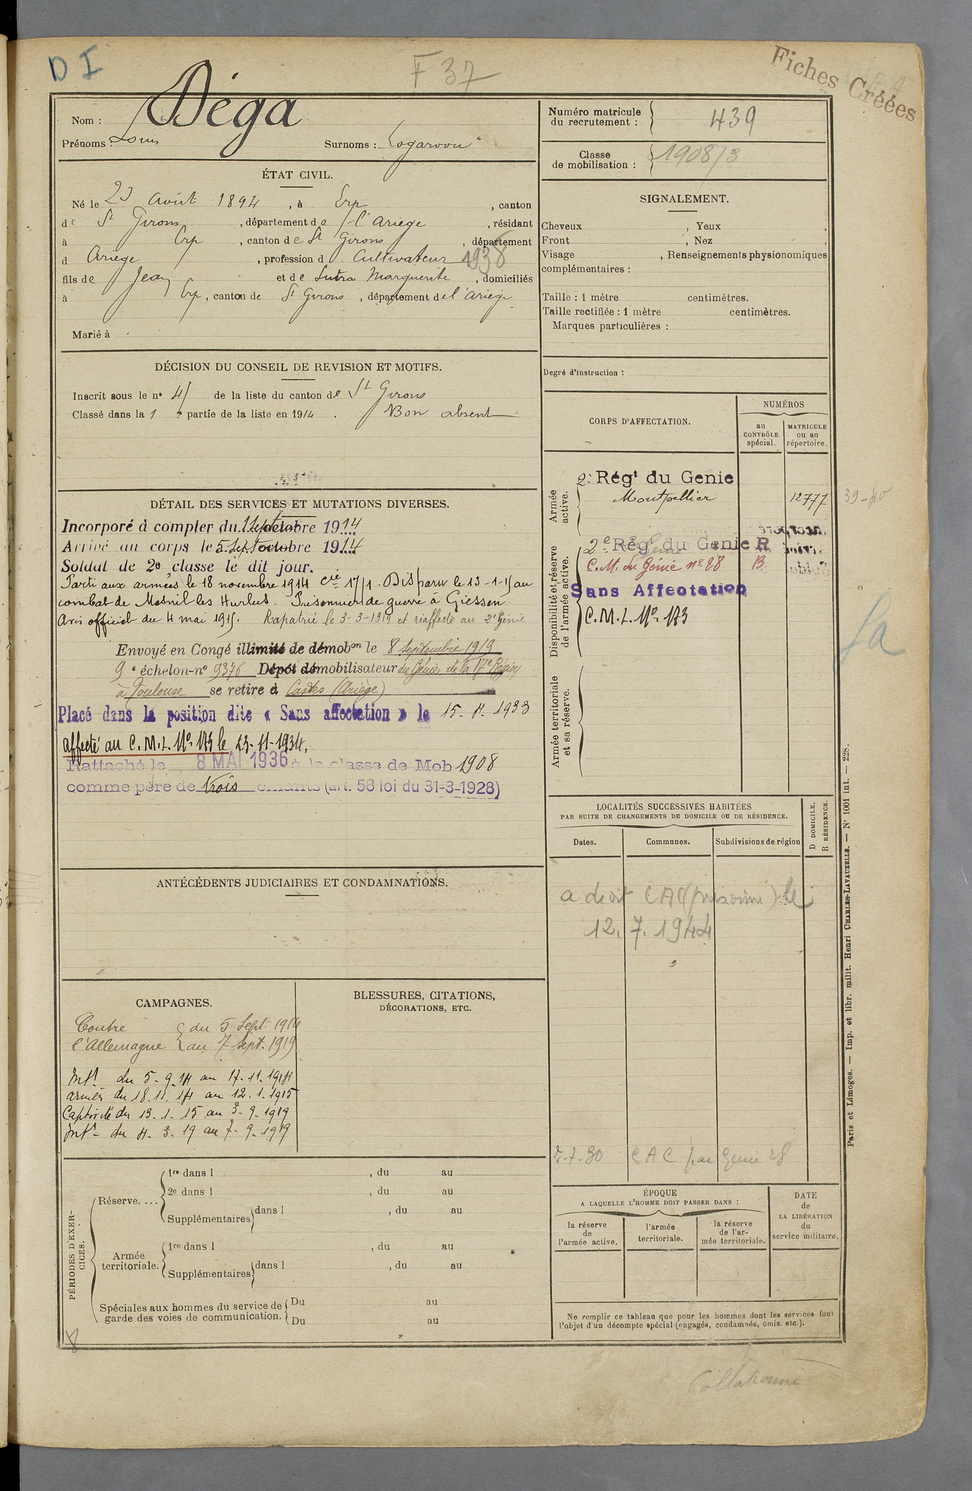 D I
F 37
Fiches Créées
Nom : Déga
Prénoms : Louis
Surnoms :
ÉTAT CIVIL.
Né le 23 Août 1894, à Erp, canton
de St Girons, département de l'Ariège, résidant
à Erp, canton de St Girons, département
d Ariège, profession d Cultivateur 1938
fils de Jean et de Sutra Marguerite, domiciliés
à Erp, canton de St Girons, département de l'Ariège
Marié à
DÉCISION DU CONSEIL DE REVISION ET MOTIFS.
Inscrit sous le n° 41 de la liste du canton de St Girons
Classé dans la 1 e partie de la liste en 1914. Bon absent
DÉTAIL DES SERVICES ET MUTATIONS DIVERSES.
Incorporé à compter du 1 Septembre 1914
Arrivé au corps le 5 Sept octobre 1914
Soldat de 2e classe le dit jour.
Parti aux armées le 18 novembre 1914 Cie 17/1. Disparu le 13-1-15 au
combat de Mesnil les Hurlus. Prisonnier de guerre à Giessen.
Avis officiel du 4 mai 1915. Rapatrié le 3-3-1919 et réaffecté au 2e Génie
Envoyé en Congé illimité de démobon le 8 Septembre 1919
9 e échelon-n° 9376 Dépôt démobilisateur du Génie de la 17e Région
à Toulouse se retire à Castes (Ariège)
Placé dans la position dite « Sans affectation » le 15-4-1933
affecté au C.M.I. N° 173 le 23-11-1934.
Rattaché le 8 MAI 1936 à la classe de Mob 1908
comme père de trois enfants (art. 58 loi du 31-3-1928)
ANTÉCÉDENTS JUDICIAIRES ET CONDAMNATIONS.
CAMPAGNES.
Contre { du 5 Sept. 1914
l'Allemagne { au 7 Sept. 1919
Intr du 5-9-14 au 17-11-1914
armées du 18.11.14 au 12.1.1915
Captivité du 13.1.15 au 3-3-1919
Intr du 4.3.19 au 7-9-1919
BLESSURES, CITATIONS,
DÉCORATIONS, ETC.
PÉRIODES D'EXERCICES.
Réserve....
1re dans l , du au
2e dans l , du au
Supplémentaires dans l , du au
Armée territoriale.
1re dans l , du au
Supplémentaires dans l , du au
Spéciales aux hommes du service de { Du au
garde des voies de communication. { Du au
8
Numéro matricule
du recrutement : 439
Classe
de mobilisation : 1908/3
SIGNALEMENT.
Cheveux , Yeux .
Front , Nez .
Visage , Renseignements physionomiques
complémentaires :
Taille : 1 mètre centimètres.
Taille rectifiée : 1 mètre centimètres.
Marques particulières :
Degré d'instruction :
CORPS D'AFFECTATION.
NUMÉROS
au
CONTRÔLE
spécial.
MATRICULE
ou au
répertoire.
Armée
active.
2e Régt du Genie
Montpellier 12777
39-40
Disponibilité et réserve
de l'armée active.
2e Rég. du Genie R
C.M. du Génie n° 28 B
Sans Affectation
C.M.I. N° 173
Armée territoriale
et sa réserve.
LOCALITÉS SUCCESSIVES HABITÉES
PAR SUITE DE CHANGEMENTS DE DOMICILE OU DE RÉSIDENCE.
Dates.
Communes.
Subdivisions de région
D DOMICILE,
R RÉSIDENCE.
a droit CAC (prisonnier) le
12.7.1944
CAC par Genie 28
ÉPOQUE
A LAQUELLE L'HOMME DOIT PASSER DANS :
la réserve
de
l'armée active.
l'armée
territoriale.
la réserve
de l'ar-
mée territoriale.
DATE
de
LA LIBÉRATION
du
service militaire.
Ne remplir ce tableau que pour les hommes dont les services font
l'objet d'un décompte spécial (engagés, condamnés, omis, etc.).
Collationné
Paris et Limoges. — Imp. et libr. milit. Henri CHARLES-LAVAUZELLE. — N° 1001 int. — 228.